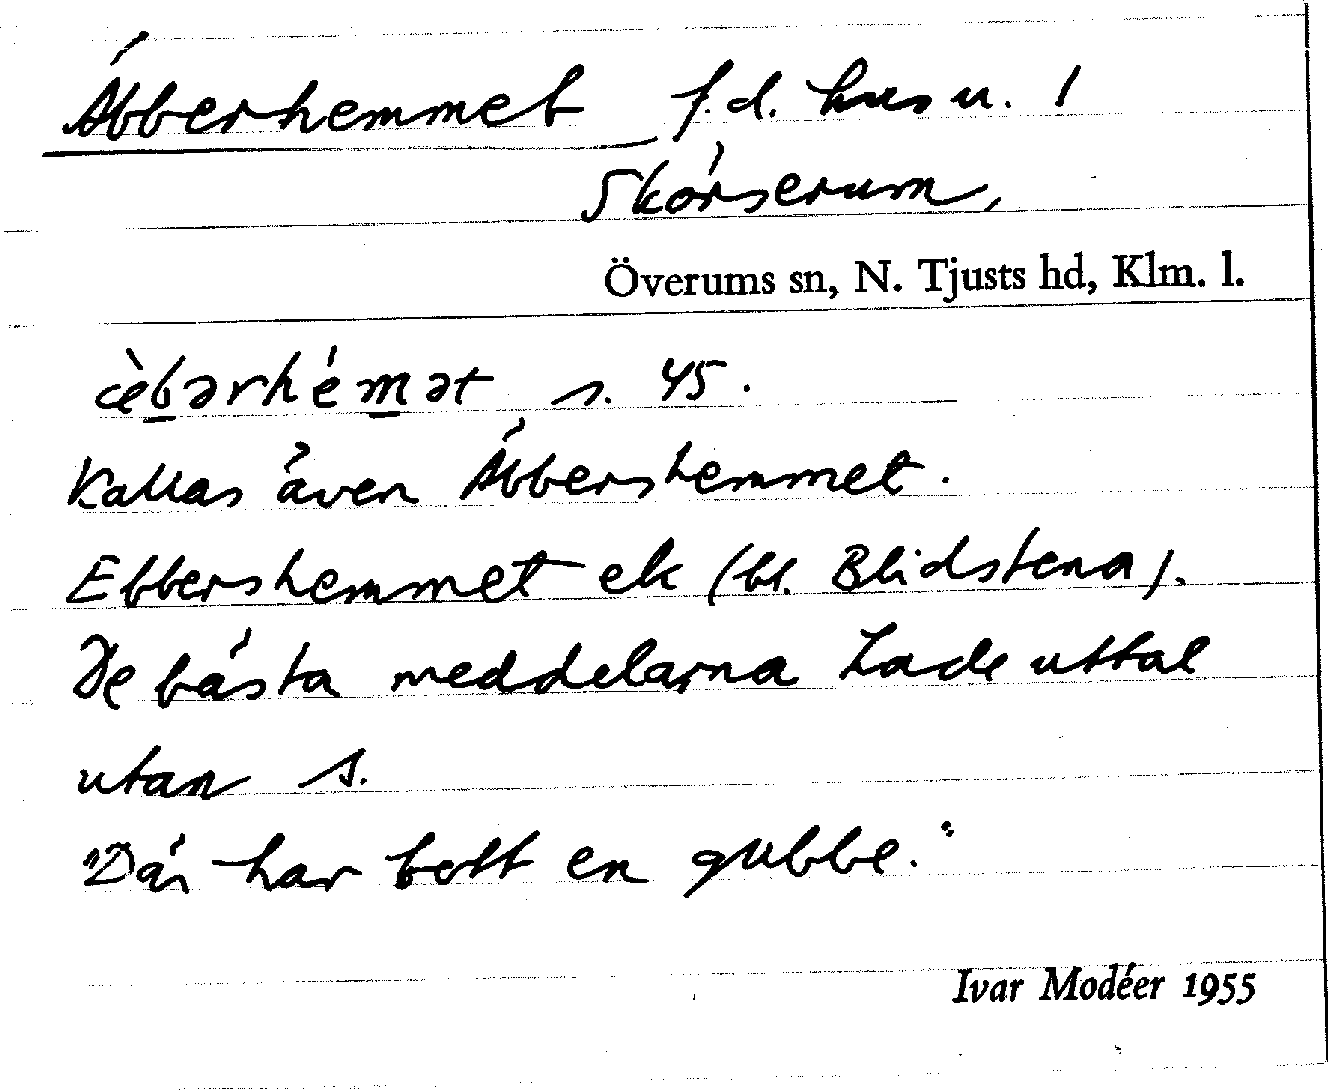 Äbberhemmet f.d. hus u. 1
Skörserum,
Överums sn, N. Tjusts hd, Klm. l.
s. 45.
Kallas även Äbbershemmet.
Ebbershemmet ek (bl. Blidstena).
De bästa meddelarna hade uttal
utan s.
"Där har bott en gubbe."
Ivar Modéer 1955